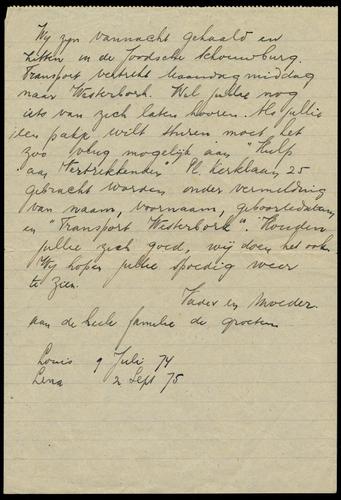 Wij zijn vannacht gehaald en
zitten in de Joodsche Schouwburg.
Transport vertrekt Maandagmiddag
naar Westerbork. Wil jullie nog
iets van zich laten hooren. Als jullie
een pakje wilt sturen moet het
zoo vlug mogelijk aan "Hulp
aan Vertrekkenden" Pl. Kerklaan 25
gebracht worden onder vermelding
van naam, voornaam, geboortedatum
en "Transport Westerbork". Houden
jullie zich goed, wij doen het ook.
Wij hopen jullie spoedig weer
te zien.
Vader en Moeder.
aan de heele familie de groeten
Louis 9 Juli 74
Lena 2 Sept 75